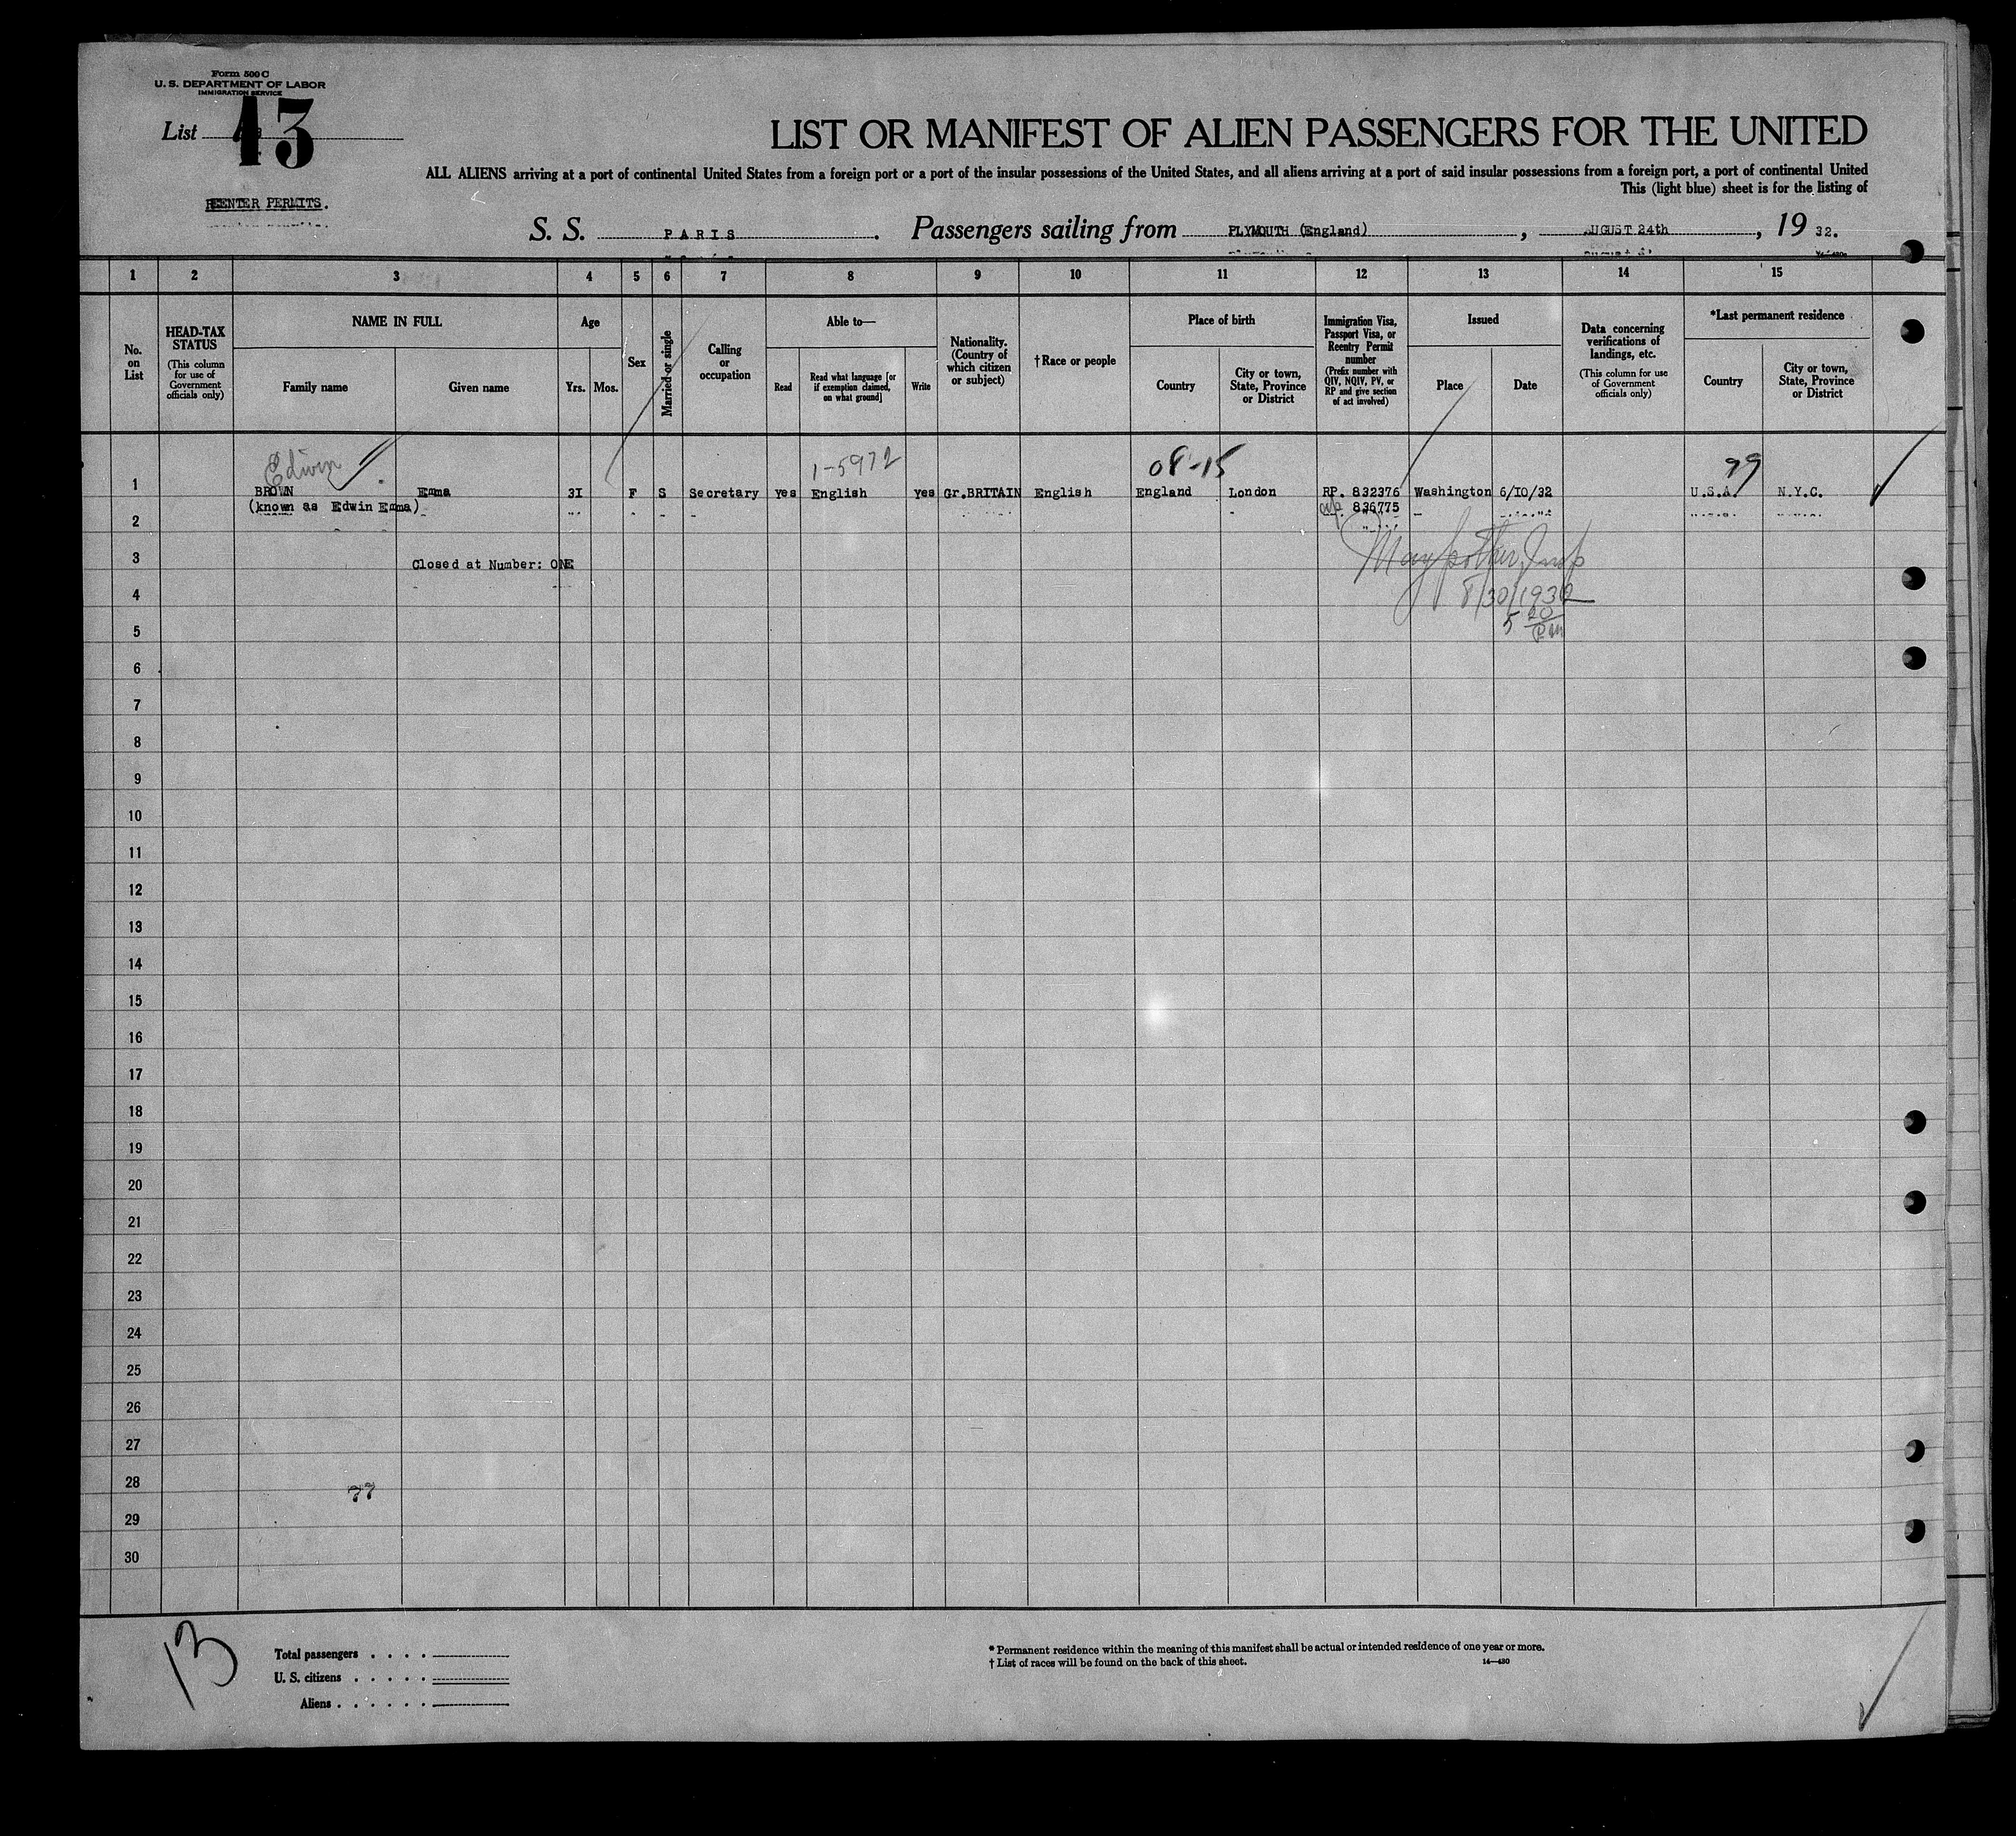 Form 500 C
U. S. DEPARTMENT OF LABOR
IMMIGRATION SERVICE
List 13
REENTER PERMITS.
LIST OR MANIFEST OF ALIEN PASSENGERS FOR THE UNITED
ALL ALIENS arriving at a port of continental United States from a foreign port or a port of the insular possessions of the United States, and all aliens arriving at a port of said insular possessions from a foreign port, a port of continental United
This (light blue) sheet is for the listing of
S. S. PARIS. Passengers sailing from PLYMOUTH (England), AUGUST 24th, 19 32.
1 2 3 4 5 6 7 8 9 10 11 12 13 14 15
No. on List
HEAD-TAX STATUS
(This column for use of Government officials only)
NAME IN FULL
Family name
Given name
Age
Yrs.
Mos.
Sex
Married or single
Calling or occupation
Able to—
Read
Read what language [or if exemption claimed, on what ground]
Write
Nationality. (Country of which citizen or subject)
† Race or people
Place of birth
Country
City or town, State, Province or District
Immigration Visa, Passport Visa, or Reentry Permit number
(Prefix number with QIV, NQIV, PV, or RP and give section of act involved)
Issued
Place
Date
Data concerning verifications of landings, etc.
(This column for use of Government officials only)
*Last permanent residence
Country
City or town, State, Province or District
Edwin 1-5972 08-15 99
1 BROWN Emma 3I F S Secretary yes English yes Gr.BRITAIN English England London RP. 832376 Washington 6/IO/32 U.S.A. N.Y.C.
(known as Edwin Emma) 836775
2
3 Closed at Number: ONE
8/30/1932
4
5 20
PM
5
6
7
8
9
10
11
12
13
14
15
16
17
18
19
20
21
22
23
24
25
26
27
28
77
29
30
13
Total passengers . . . .
U. S. citizens . . . . .
Aliens . . . . . .
* Permanent residence within the meaning of this manifest shall be actual or intended residence of one year or more.
† List of races will be found on the back of this sheet. 14—430